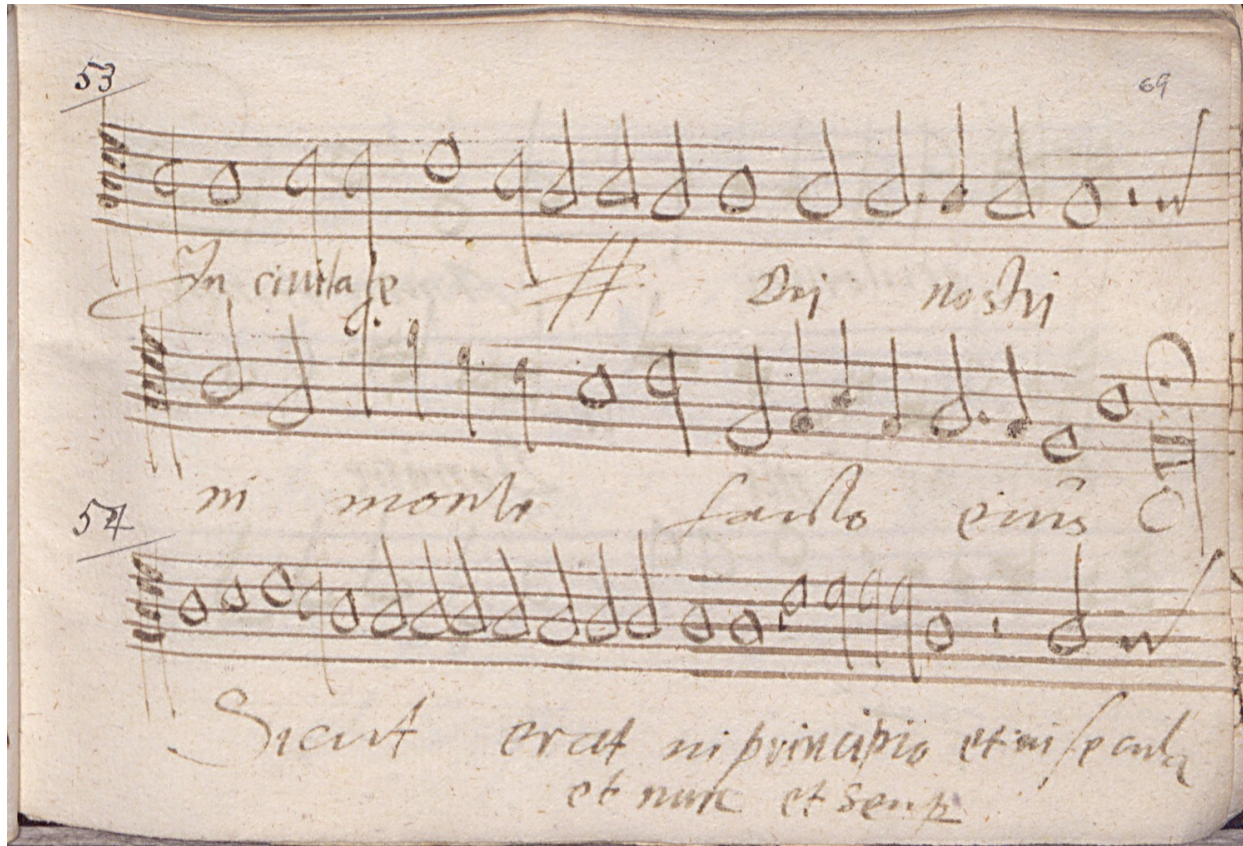 53
69
In civitate Dei nostri
in monte sancto eius
54
Sicut erat in principio et in secula
et nunc et semp